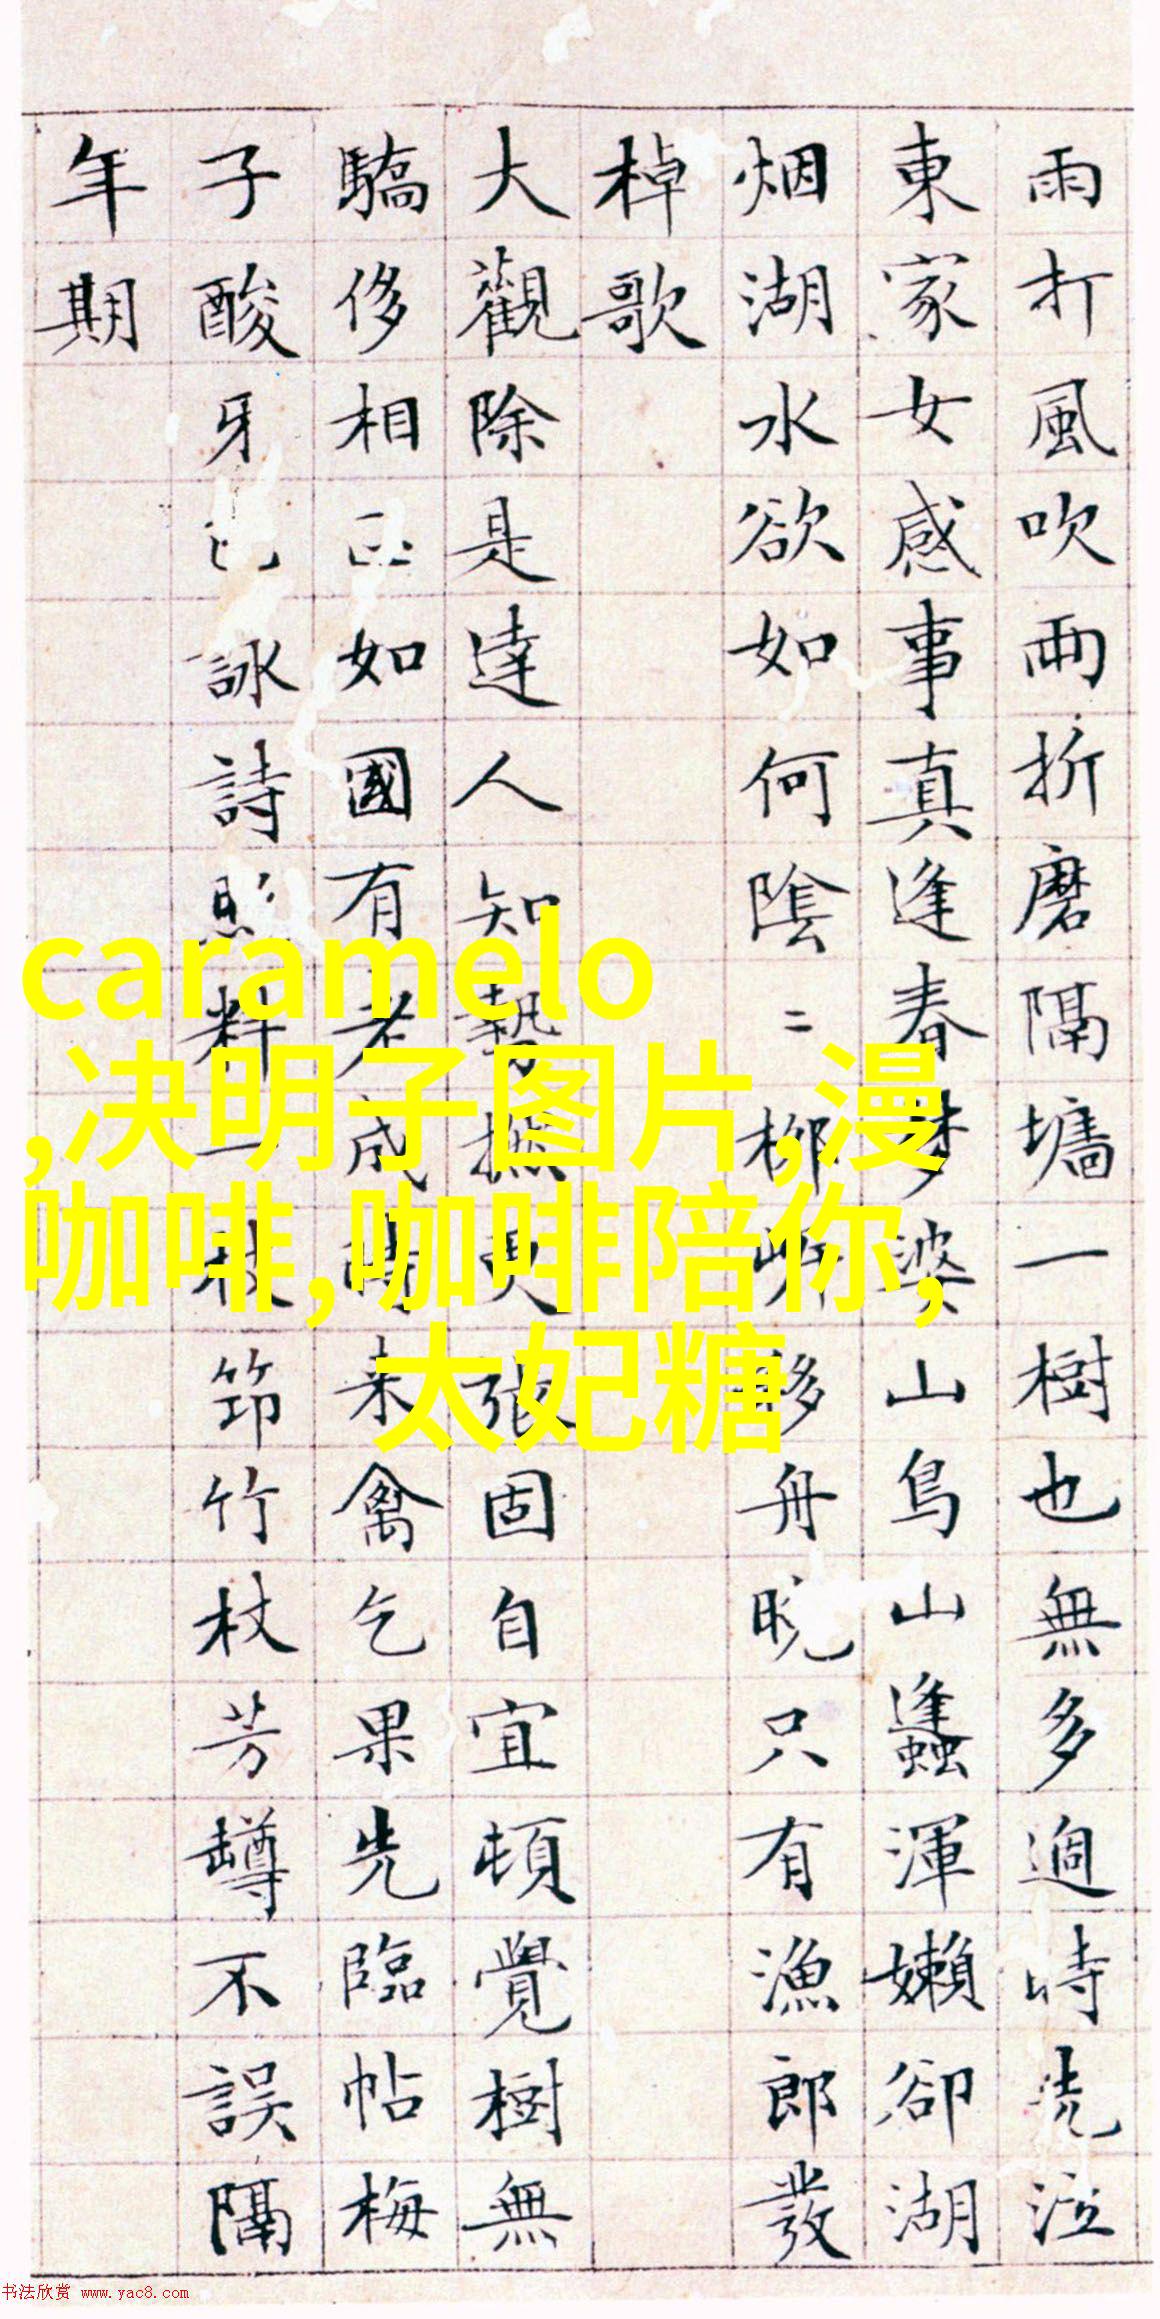 雨打風吹兩折磨隔墻一樹也無多過時泣
東家女感事真逢春夢婆山鳥山蠭渾嬾卻湖
烟湖水欲如何陰二柳移舟晚只有漁郎發
棹歌
大觀除是達人知勢更張固自宜頓覺樹無
驕侈相如國有老成時来禽乞果先臨帖梅
子酸牙詠詩照料一枝笻竹杖芳罇不誤隔
年期
caramelo
,决明子图片,漫
咖啡,咖啡陪你,
太妃糖
书法欣赏 www.yac8.com